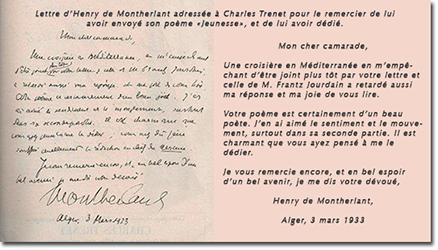 Lettre d'Henry de Montherlant adressée à Charles Trenet pour le remercier de lui
avoir envoyé son poème «Jeunesse», et de lui avoir dédié.
Mon cher camarade,
Une croisière en Méditerranée, en m'empêchant
d'être joint plus tôt par votre lettre
a retardé aussi ma réponse et ma joie de vous lire.
Votre poème est certainement d'un beau poète. J'en
ai aimé le sentiment et le mouvement, surtout
dans sa seconde partie. Il est charmant que
vous ayez pensé à me le dédier
Je vous remercie encore, et, en bel espoir d'un
bel avenir je me dis votre dévoué
Montherlant
Alger, 3 Mars 1933
Mon cher camarade,
Une croisière en Méditerranée en m'empê-
chant d'être joint plus tôt par votre lettre et
celle de M. Frantz Jourdain a retardé aussi
ma réponse et la joie de vous lire.
Votre poème est certainement d'un beau
poète. J'en ai aimé le sentiment et le mouve-
ment, surtout dans sa seconde partie. Il est
charmant que vous ayez pensé à me le
dédier.
Je vous remercie encore, et en bel espoir
d'un bel avenir, je me dis votre dévoué,
Henry de Montherlant,
Alger, 3 mars 1933